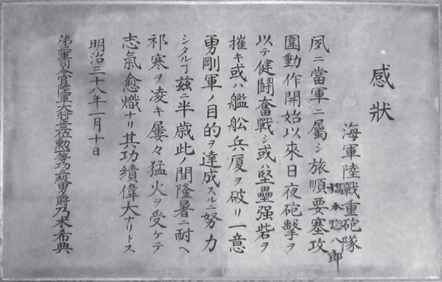 感狀
海軍陸戰重砲隊
橋本惣八郎
夙ニ當軍ニ屬シ旅順要塞攻
圍動作開始以來日夜砲擊ヲ
以テ健鬪奮戰シ或ハ堅壘强砦ヲ
摧キ或ハ艦舩兵廈ヲ破リ一意
勇剛軍ノ目的ヲ達成スルニ努力
シタルヿ玆ニ半歲此ノ間隆暑ニ耐ヘ
祁寒ヲ凌キ屢々猛火ヲ受ケテ
志氣愈熾ナリ其功績偉大ナリトス
明治三十八年一月十日
第三軍司令官陸軍大將正三位勲一等功三級男爵乃木希典